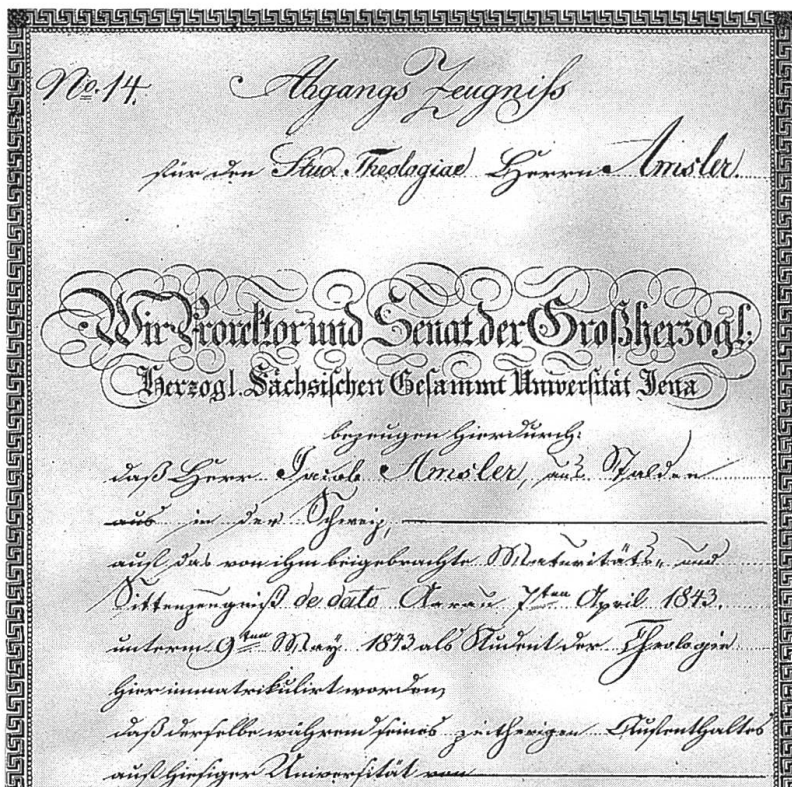 No. 14. Abgangs Zeugniss
für den Stud. Theologiae Herrn Amsler.
Wir Prorektor und Senat der Großherzogl:
Herzogl. Sächsischen Gesammt Universität Jena
bezeugen hierdurch:
daß Herr Jacob Amsler, aus Stalden
aus in der Schweiz,
auf das von ihm beigebrachte Maturitäts- und
Sittenzeugniß de dato Aarau 7ten April 1843.
unterm 9ten May 1843 als Student der Theologie
hier immatrikulirt worden,
daß derselbe während seines zeitherigen Aufenthaltes
auf hiesiger Universität von